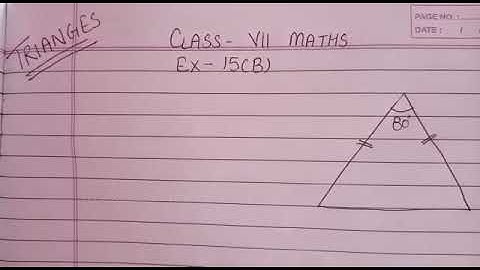 TRIANGES
CLASS- VII MATHS
Ex- 15(B)
PAGE NO.:
DATE: / /
80°